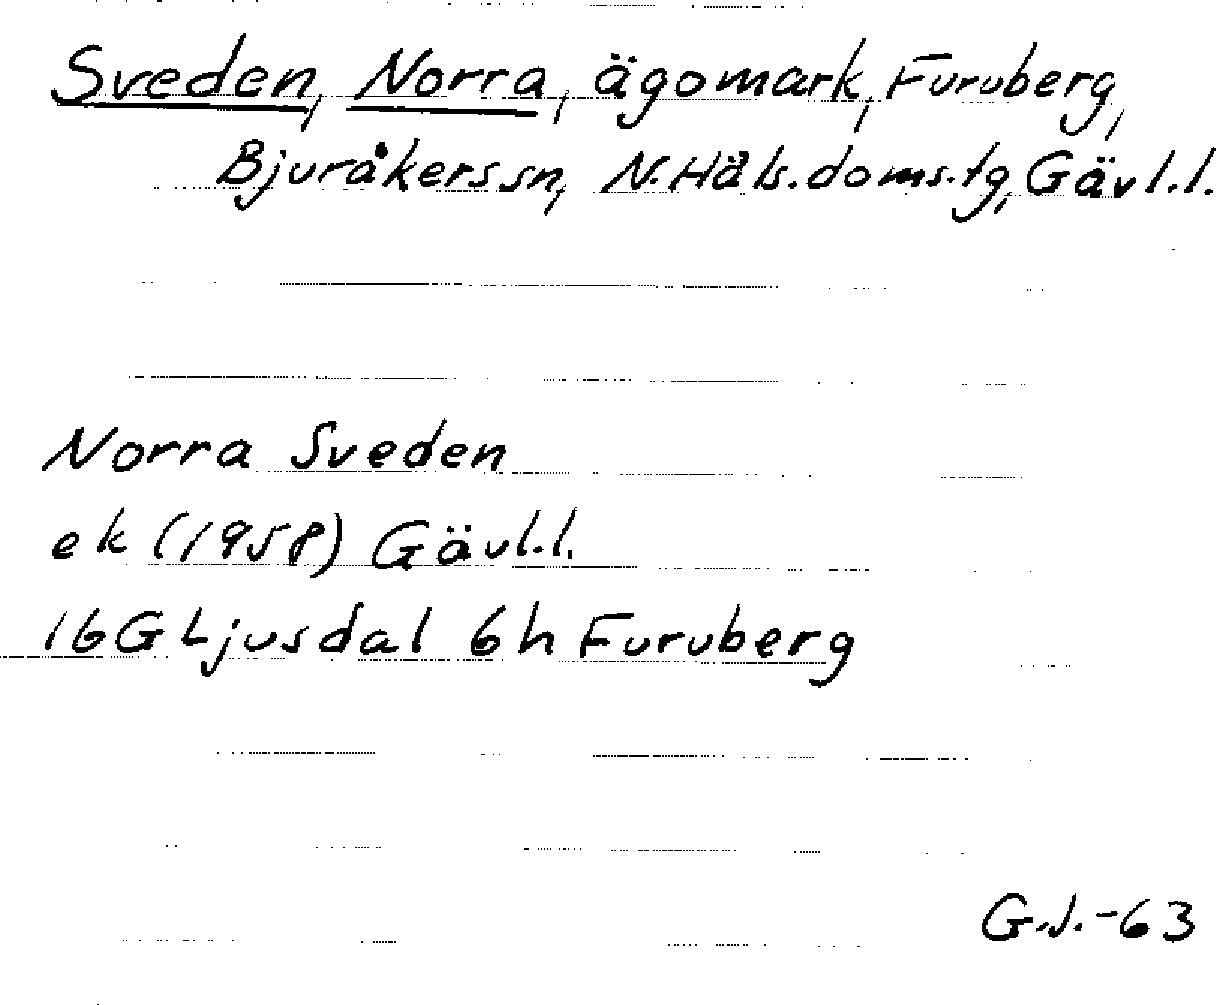 Sveden, Norra, ägomark, Furuberg,
Bjuråkers sn, N. Häls. doms. tg, Gävl. l.
Norra Sveden
ek (1958) Gävl. l.
16G Ljusdal 6h Furuberg
G.J.-63